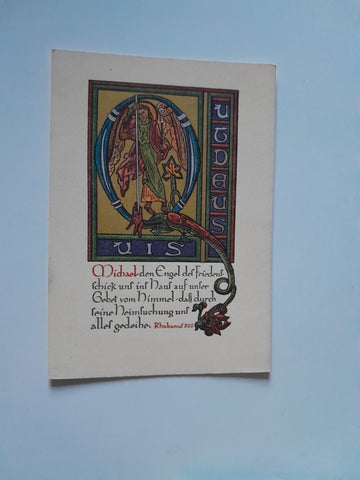 QUIS
UT DEUS
Michael den Engel des Friedens
schick uns ins Haus auf unser
Gebet vom Himmel · daß durch
seine Heimsuchung uns
alles gedeihe. Rhabanus 850